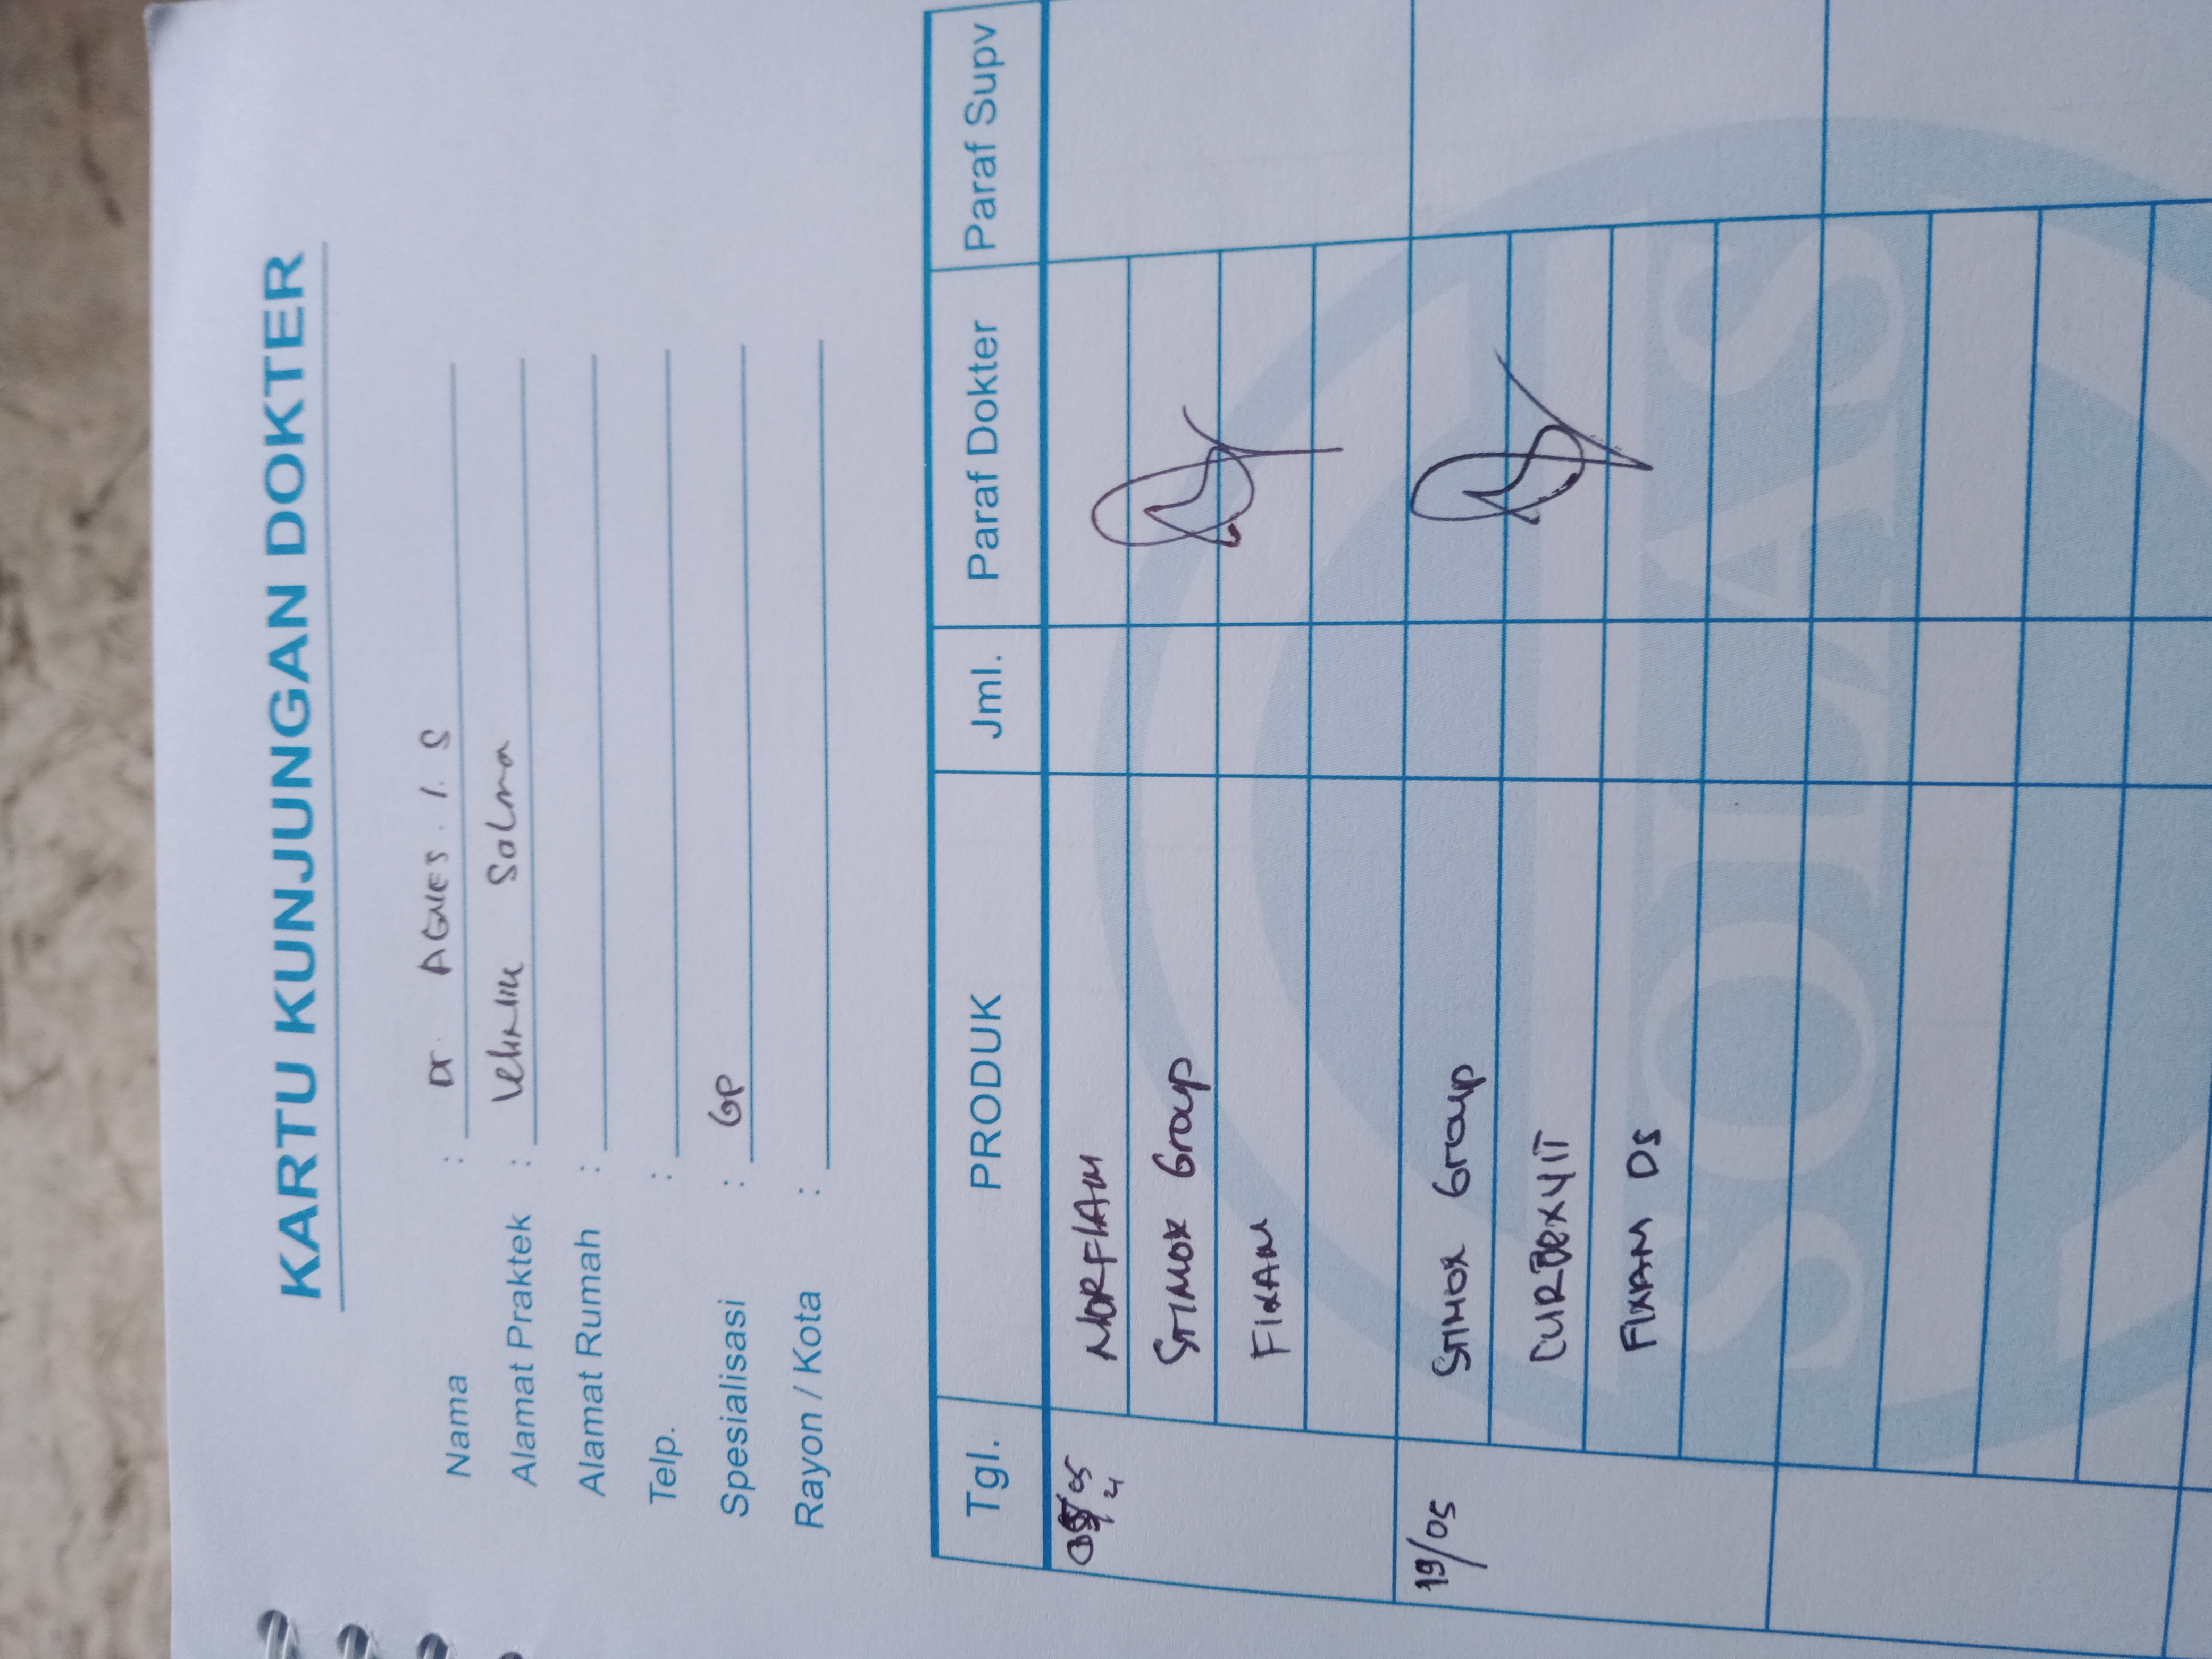 KARTU KUNJUNGAN DOKTER
Nama : Dr. AGNES . I. S
Alamat Praktek : Klinik Salma
Alamat Rumah :
Telp. :
Spesialisasi : GP
Rayon / Kota :
Tgl. PRODUK Jml. Paraf Dokter Paraf Supv
NORFLAM
STIMOX Group
FIXAM
19/05 STIMOX Group
CURBEXVIT
FIXAM DS
SOLAS